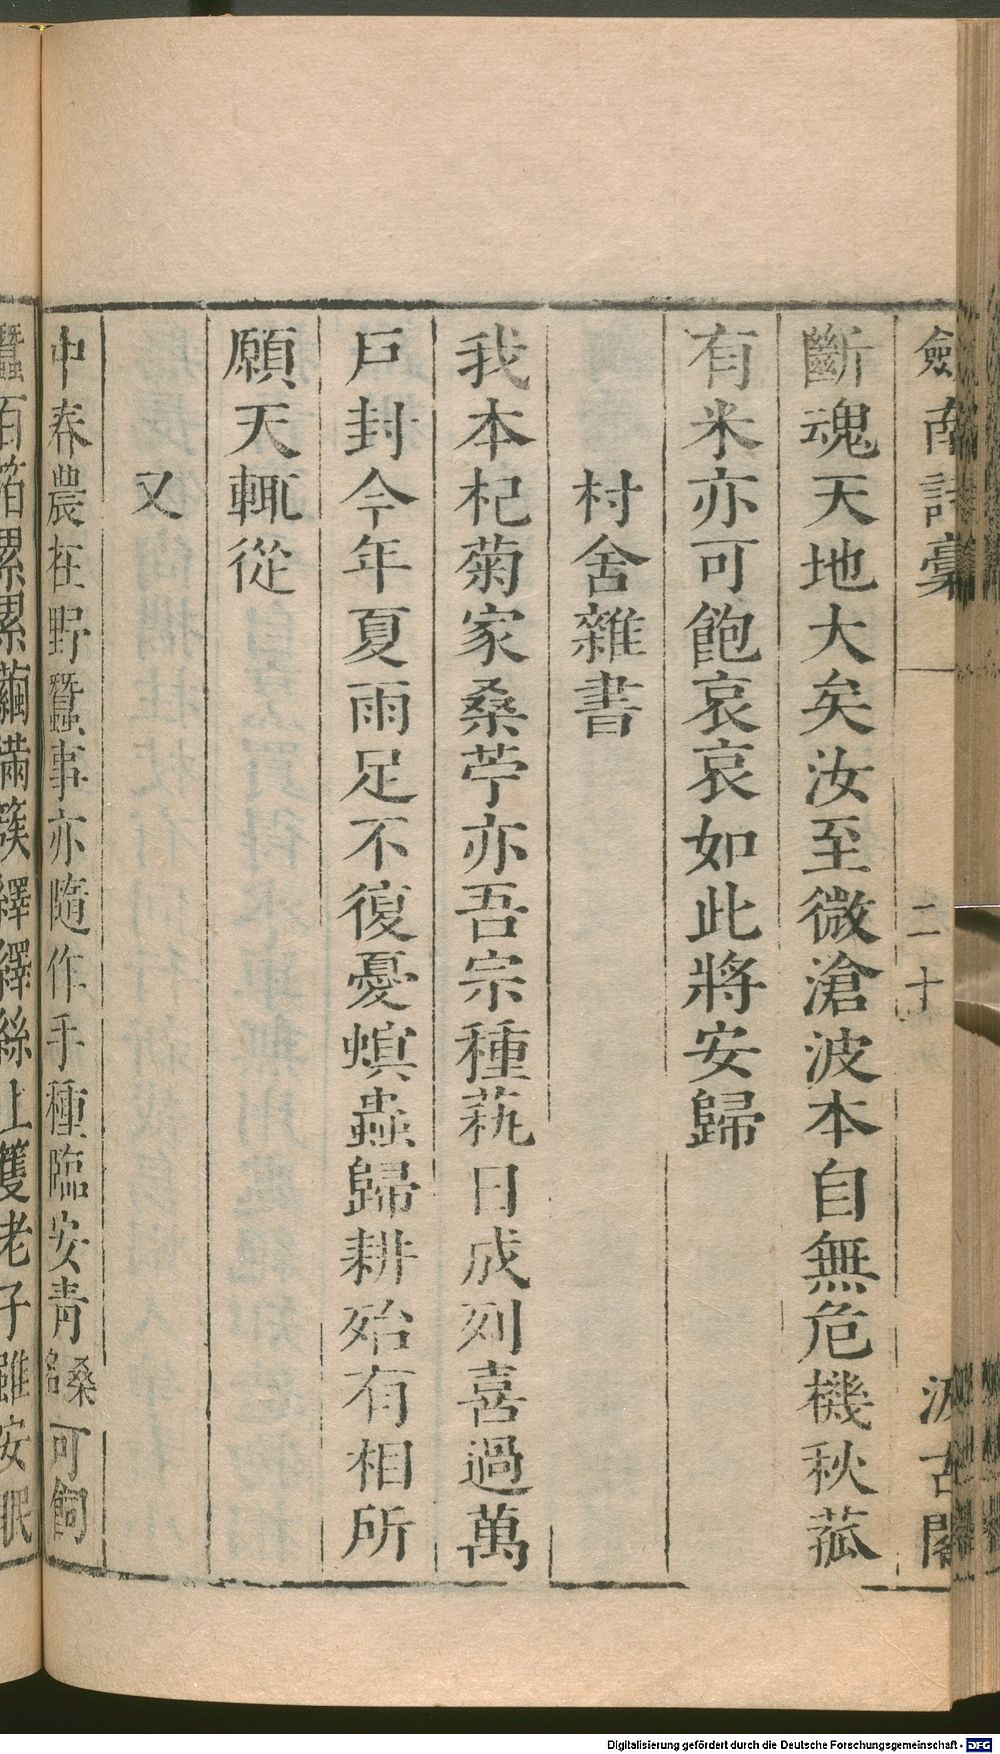 劔南詩稾 二十 汲古閣
斷魂天地大矣汝至微滄波本自無危機秋菰
有米亦可飽哀哀如此將安歸
村舍雜書
我本杞菊家桑苧亦吾宗種蓺日成列喜過萬
戶封今年夏雨足不復憂螟蟲歸耕殆有相所
願天輒從
又
中春農在野蠶事亦隨作手種臨安青桑名可飼
蠶百箔累累繭滿簇繹繹絲上籰老子雖安眠
Digitalisierung gefördert durch die Deutsche Forschungsgemeinschaft - DFG